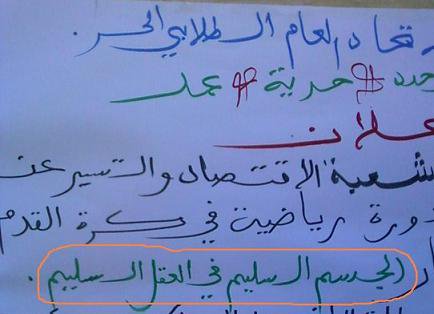 تحاد العام الطلابي الحر.
حرية عمل
علان
شعبة الاقتصاد والتسيير عن
دورة رياضية في كرة القدم
(الجسم السليم في العقل السليم.